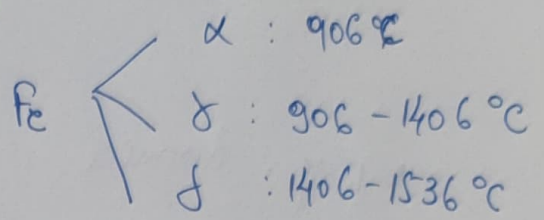 α : 906℃
Fe γ : 906 - 1406 °C
δ : 1406 - 1536 °C